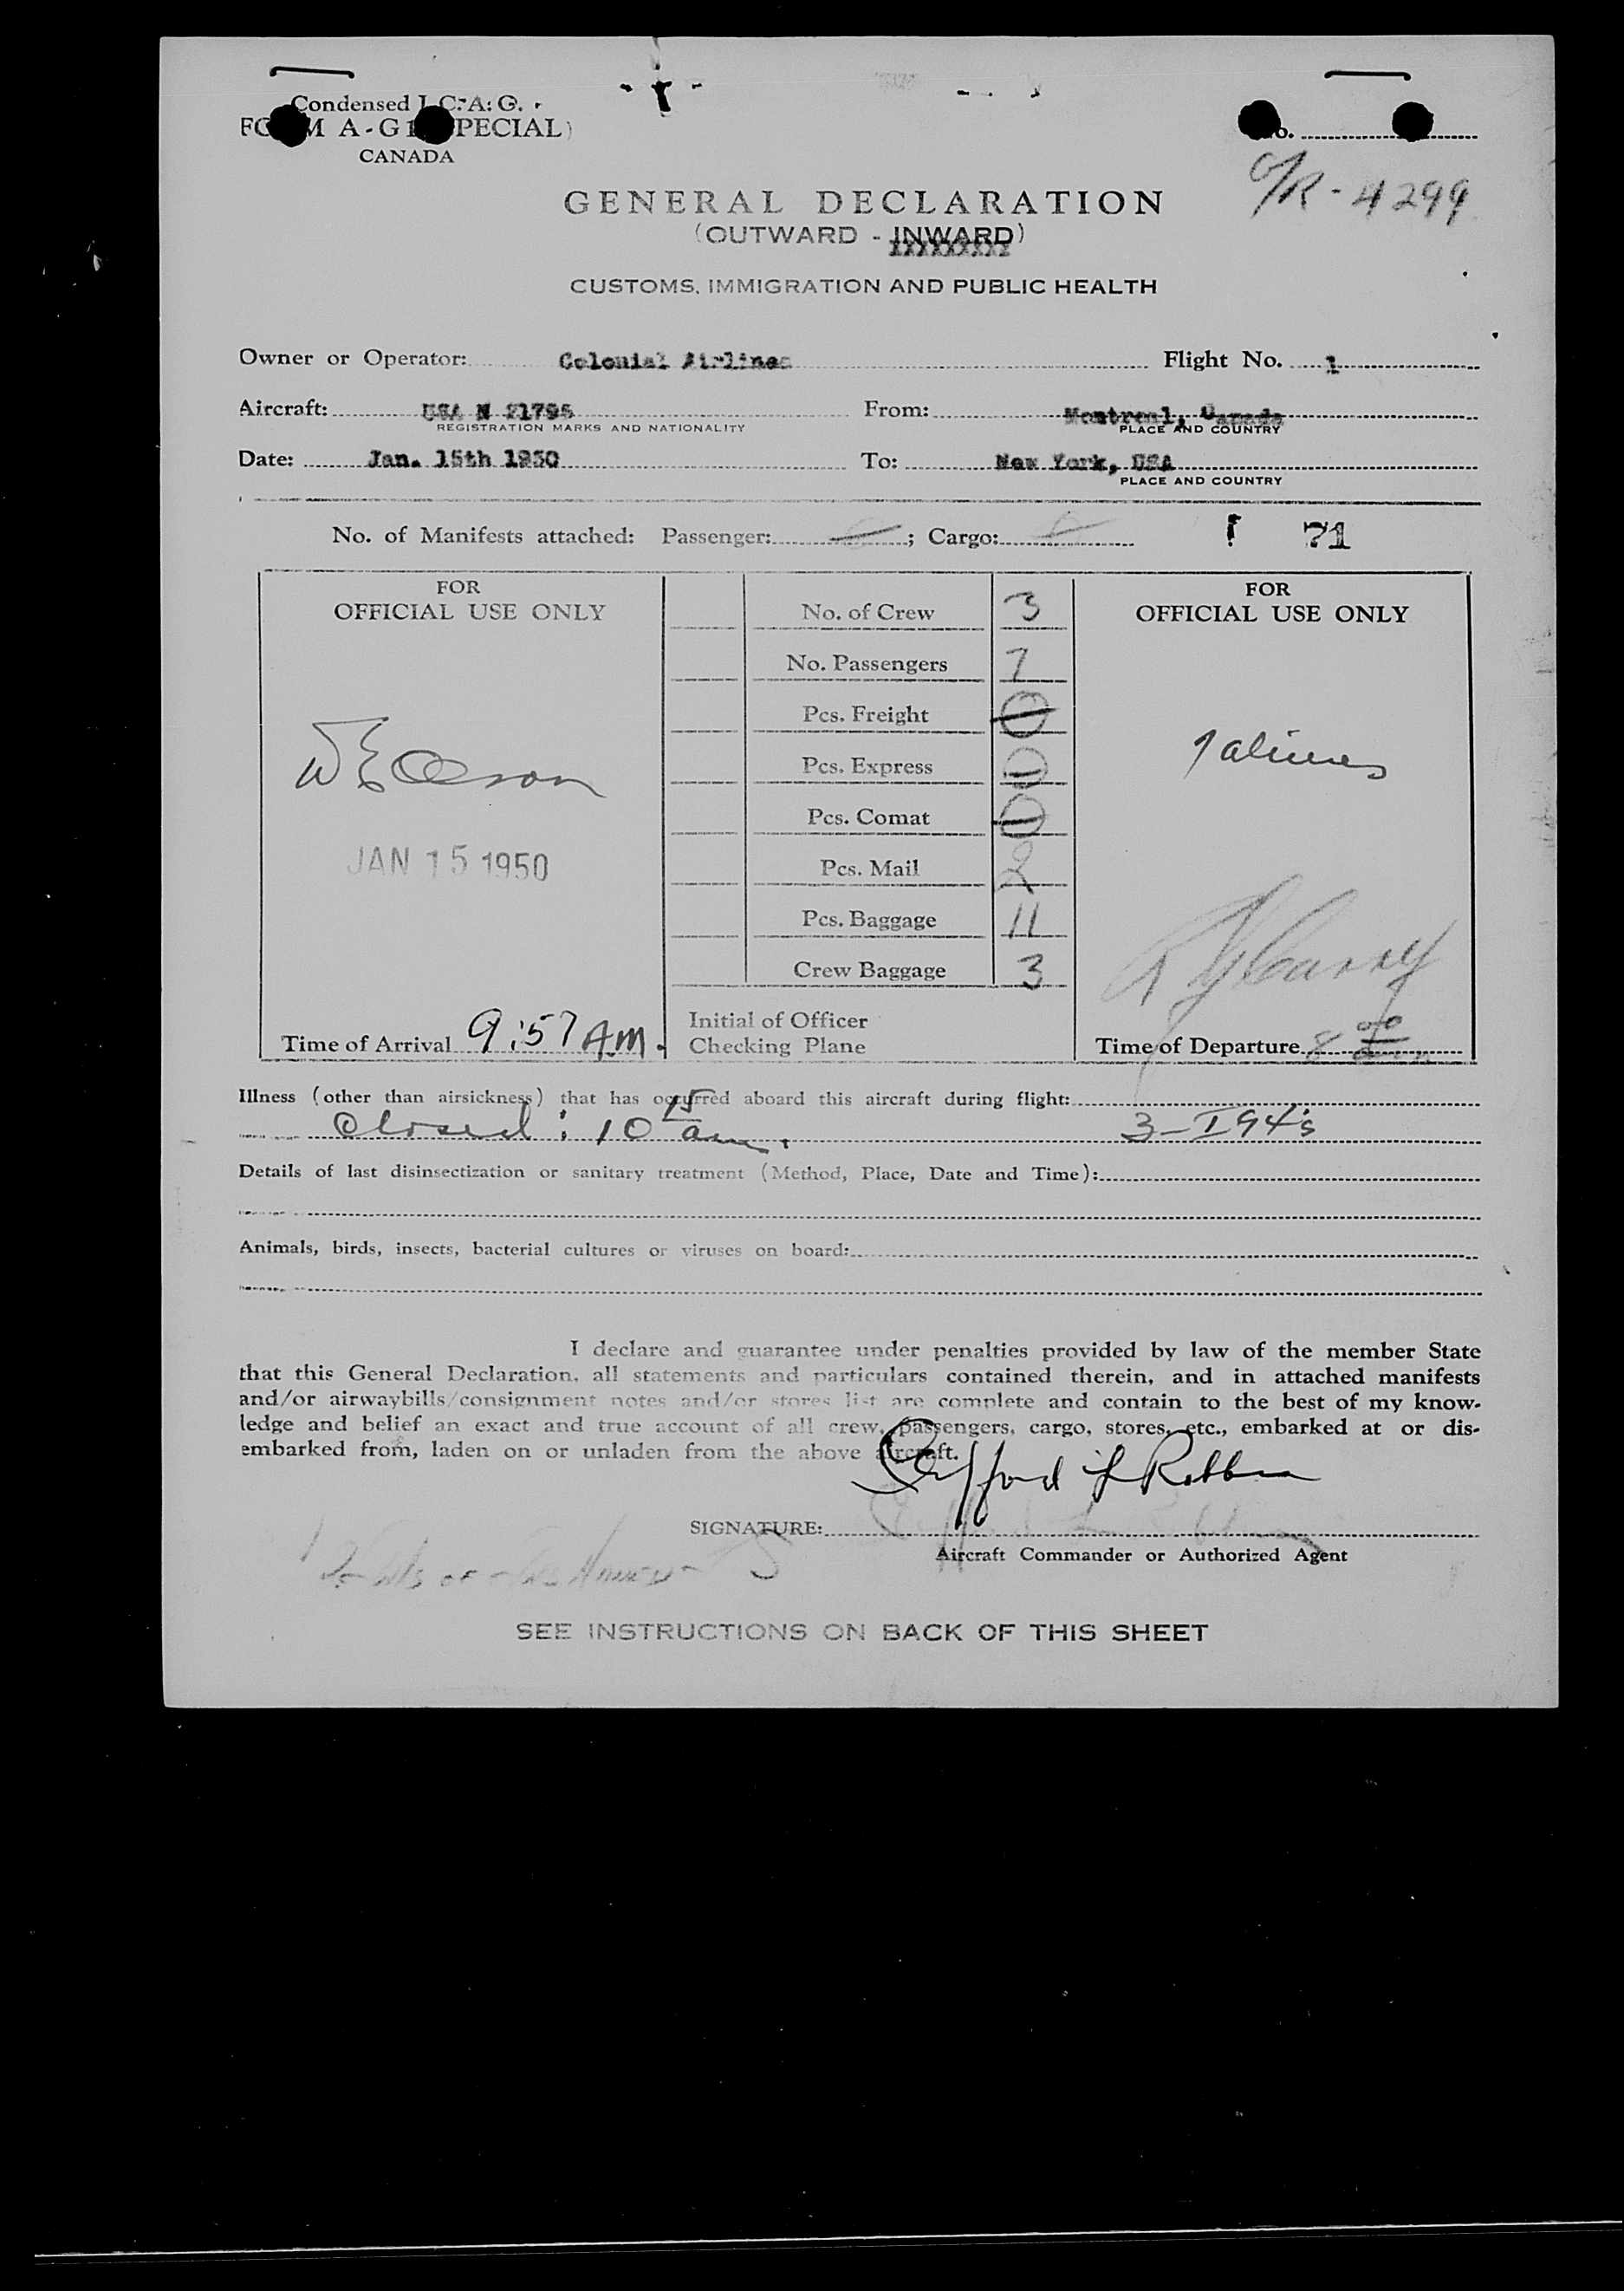 Condensed I. C. A. O.
FORM A-G1 (SPECIAL)
CANADA
No.
O/R - 4299
GENERAL DECLARATION
(OUTWARD - INWARD)
CUSTOMS, IMMIGRATION AND PUBLIC HEALTH
Owner or Operator: Colonial Airlines Flight No. 1
Aircraft: USA N 21795 From: Montreal, Canada
REGISTRATION MARKS AND NATIONALITY PLACE AND COUNTRY
Date: Jan. 15th 1950 To: New York, USA
PLACE AND COUNTRY
No. of Manifests attached: Passenger: ; Cargo: 71
FOR
OFFICIAL USE ONLY
JAN 15 1950
Time of Arrival 9:57 A.M.
No. of Crew 3
No. Passengers 7
Pcs. Freight
Pcs. Express
Pcs. Comat
Pcs. Mail 2
Pcs. Baggage 11
Crew Baggage 3
Initial of Officer
Checking Plane
FOR
OFFICIAL USE ONLY
1 aliens
Time of Departure 8 00
Illness (other than airsickness) that has occurred aboard this aircraft during flight:
Closed: 10 15 am. 3-I94's
Details of last disinsectization or sanitary treatment (Method, Place, Date and Time):
Animals, birds, insects, bacterial cultures or viruses on board:
I declare and guarantee under penalties provided by law of the member State
that this General Declaration, all statements and particulars contained therein, and in attached manifests
and/or airwaybills/consignment notes and/or stores list are complete and contain to the best of my know-
ledge and belief an exact and true account of all crew, passengers, cargo, stores, etc., embarked at or dis-
embarked from, laden on or unladen from the above aircraft.
SIGNATURE:
Aircraft Commander or Authorized Agent
SEE INSTRUCTIONS ON BACK OF THIS SHEET